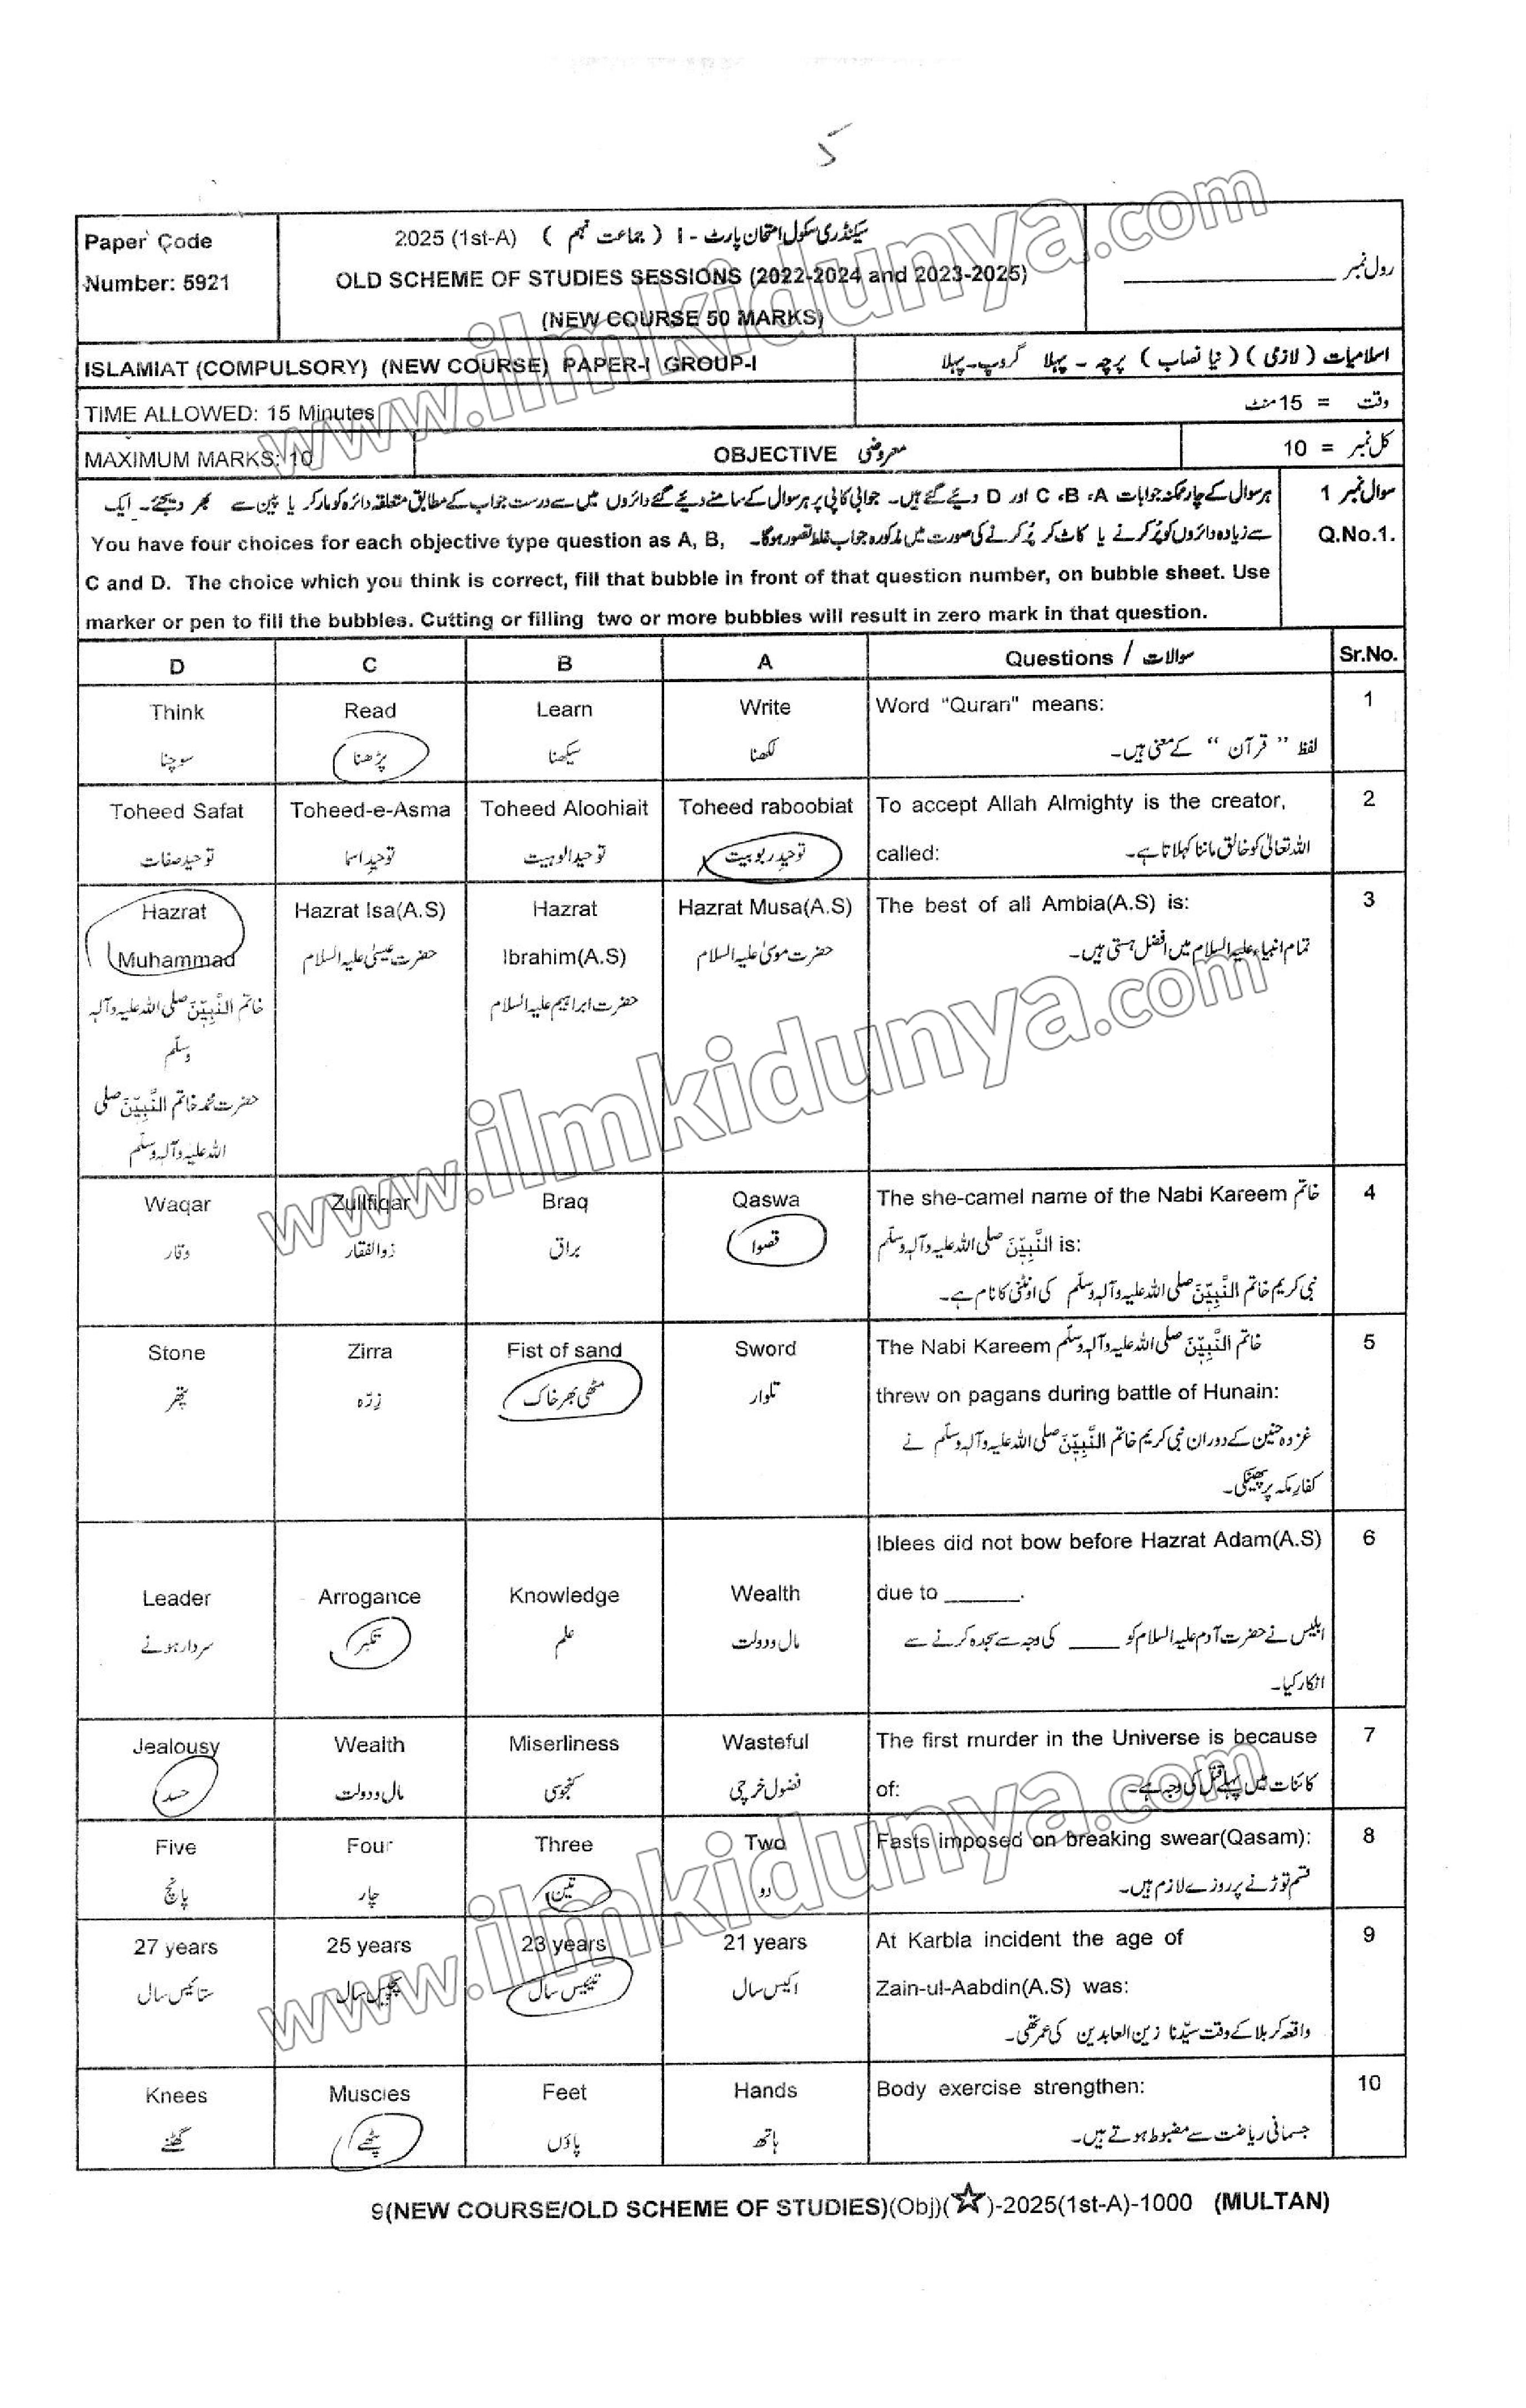 Paper Code
Number: 5921
سیکنڈری سکول امتحان پارٹ - I ( جماعت نہم ) 2025 (1st-A)
OLD SCHEME OF STUDIES SESSIONS (2022-2024 and 2023-2025)
(NEW COURSE 50 MARKS)
رول نمبر
ISLAMIAT (COMPULSORY) (NEW COURSE) PAPER-I GROUP-I
اسلامیات ( لازمی ) ( نیا نصاب ) پرچہ - پہلا گروپ - پہلا
TIME ALLOWED: 15 Minutes
وقت = 15 منٹ
MAXIMUM MARKS: 10
OBJECTIVE معروضی
کل نمبر = 10
سوال نمبر 1
Q.No.1.
ہر سوال کے چار ممکنہ جوابات A، B، C اور D دیئے گئے ہیں۔ جوابی کاپی پر ہر سوال کے سامنے دیئے گئے دائروں میں سے درست جواب کے مطابق متعلقہ دائرہ کو مارکر یا پین سے بھر دیجئے۔ ایک
سے زیادہ دائروں کو پُر کرنے یا کاٹ کر پُر کرنے کی صورت میں مذکورہ جواب غلط تصور ہوگا۔ You have four choices for each objective type question as A, B,
C and D. The choice which you think is correct, fill that bubble in front of that question number, on bubble sheet. Use
marker or pen to fill the bubbles. Cutting or filling two or more bubbles will result in zero mark in that question.
D C B A Questions / سوالات Sr.No.
Think Read Learn Write Word "Quran" means: 1
سوچنا پڑھنا سیکھنا لکھنا لفظ "قرآن" کے معنی ہیں۔
Toheed Safat Toheed-e-Asma Toheed Aloohiait Toheed raboobiat To accept Allah Almighty is the creator, 2
توحید صفات توحیدِ اسما توحید الوہیت توحیدِ ربوبیت called: اللہ تعالیٰ کو خالق ماننا کہلاتا ہے۔
Hazrat Hazrat Isa(A.S) Hazrat Hazrat Musa(A.S) The best of all Ambia(A.S) is: 3
Muhammad حضرت عیسیٰ علیہ السلام Ibrahim(A.S) حضرت موسیٰ علیہ السلام تمام انبیاء علیہ السلام میں افضل ہستی ہیں۔
خاتم النَّبِیّٖنَ صلی اللہ علیہ وآلہٖ حضرت ابراہیم علیہ السلام
وسلّم
حضرت محمد خاتم النَّبِیّٖنَ صلی
اللہ علیہ وآلہٖ وسلّم
Waqar Zullfiqar Braq Qaswa The she-camel name of the Nabi Kareem خاتم 4
وقار ذوالفقار براق قصوا النَّبِیّٖنَ صلی اللہ علیہ وآلہٖ وسلّم is:
نبی کریم خاتم النَّبِیّٖنَ صلی اللہ علیہ وآلہٖ وسلّم کی اونٹنی کا نام ہے۔
Stone Zirra Fist of sand Sword The Nabi Kareem خاتم النَّبِیّٖنَ صلی اللہ علیہ وآلہٖ وسلّم 5
پتھر زرّہ مٹھی بھر خاک تلوار threw on pagans during battle of Hunain:
غزوہ حنین کے دوران نبی کریم خاتم النَّبِیّٖنَ صلی اللہ علیہ وآلہٖ وسلّم نے
کفارِ مکہ پر پھینکی۔
Iblees did not bow before Hazrat Adam(A.S) 6
Leader Arrogance Knowledge Wealth due to ______.
سردار ہونے تکبر علم مال و دولت ابلیس نے حضرت آدم علیہ السلام کو ____ کی وجہ سے سجدہ کرنے سے
انکار کیا۔
Jealousy Wealth Miserliness Wasteful The first murder in the Universe is because 7
حسد مال و دولت کنجوسی فضول خرچی of: کائنات میں پہلے قتل کی وجہ ہے۔
Five Four Three Two Fasts imposed on breaking swear(Qasam): 8
پانچ چار تین دو قسم توڑنے پر روزے لازم ہیں۔
27 years 25 years 23 years 21 years At Karbla incident the age of 9
ستائیس سال پچیس سال تئیس سال اکیس سال Zain-ul-Aabdin(A.S) was:
واقعہ کربلا کے وقت سیّدنا زین العابدین کی عمر تھی۔
Knees Muscles Feet Hands Body exercise strengthen: 10
گھٹنے پٹھے پاؤں ہاتھ جسمانی ریاضت سے مضبوط ہوتے ہیں۔
9(NEW COURSE/OLD SCHEME OF STUDIES)(Obj)(☆)-2025(1st-A)-1000 (MULTAN)
www.ilmkidunya.com
www.ilmkidunya.com
www.ilmkidunya.com